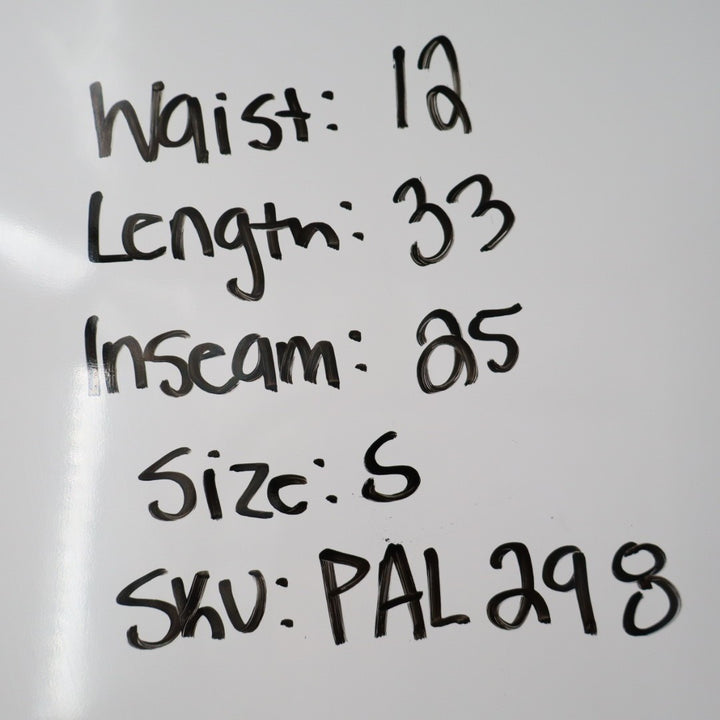 Waist: 12
Length: 33
Inseam: 25
Size: S
SKU: PAL298